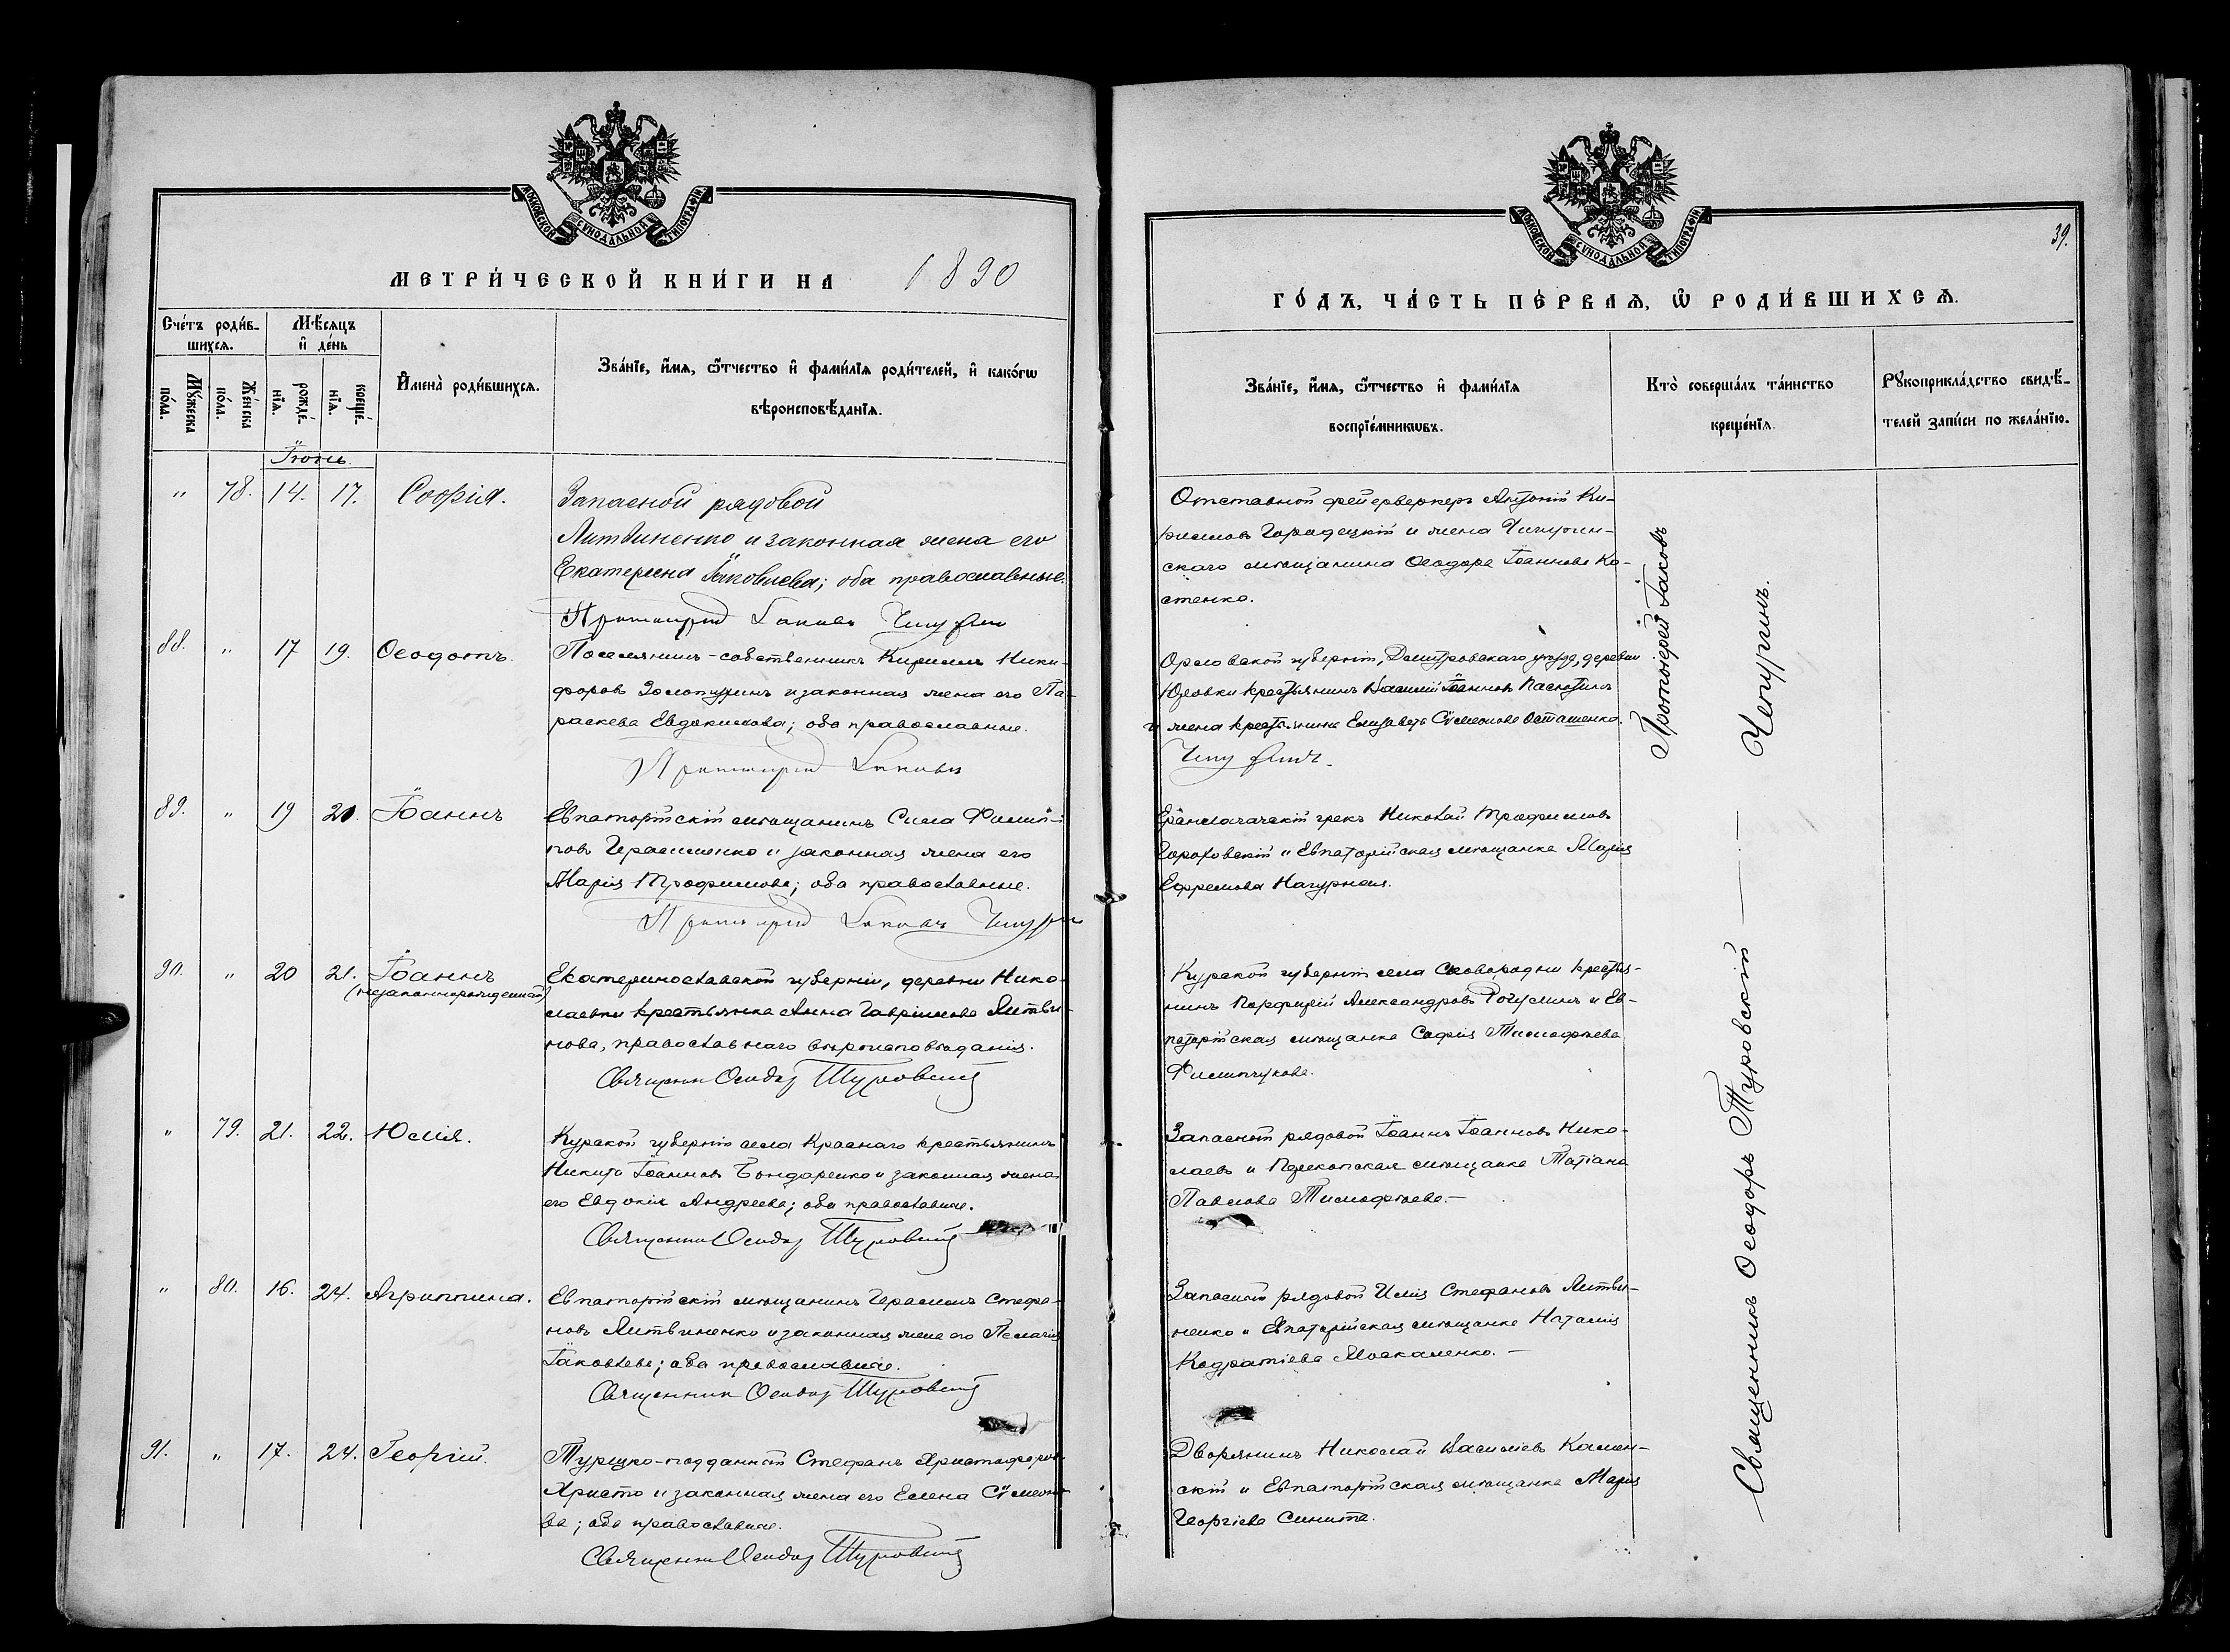 МОСКОВСКОЙ СѴНОДАЛЬНОЙ ТИПОГРАФІИ
МЕТРИ́ЧЕСКОЙ КНИ́ГИ НА 1890
Сче́тъ роди́в-
шихсѧ.
Мѣ́сѧцъ
и҆ де́нь
И҆мена̀ роди́вшихсѧ.
Зва́нїе, и҆́мѧ, ѻ҆́тчество и҆ фами́лїѧ роди́телей, и҆ како́гѡ
вѣроисповѣ́данїѧ.
Мꙋ́жеска
по́ла.
Же́нска
по́ла.
рожде́-
нїѧ.
креще́-
нїѧ.
Іюнь.
" 78. 14. 17. Софія. Запасной рядовой
Литвиненко и законная жена его
Екатерина Іаковлева; оба православные.
Протоиерей Іаковъ Чепуринъ
88. " 17 19. Ѳеодотъ. Поселянинъ-собственникъ Кириллъ Ники-
форовъ и законная жена его Па-
раскева Евдокимова; оба православные.
Протоиерей Іаковъ
89. " 19 20. Іоаннъ Евпаторійскій мѣщанинъ Сила Филип-
повъ Герасименко и законная жена его
Марія Трофимова; оба православные.
Протоиерей Іаковъ Чепуринъ
90. " 20 21. Іоаннъ
(незаконнорожденный)
Екатеринославской губерніи, деревни Нико-
лаевки крестьянка Анна Гавріилова Литви-
нова, православнаго вѣроисповѣданія.
Священникъ Ѳеодоръ Туровскій
" 79. 21. 22. Юлія. Курской губерніи села Краснаго крестьянинъ
Никита Іоанновъ Бондаренко и законная жена
его Евдокія Андреева; оба православные.
Священникъ Ѳеодоръ Туровскій
" 80. 16. 24. Агриппина. Евпаторійскій мѣщанинъ Герасимъ Стефа-
новъ Литвиненко и законная жена его Пелагія
Іаковлева; оба православные.
Священникъ Ѳеодоръ Туровскій
91. " 17. 24. Георгій. Турецко-подданный Стефанъ Христофоровъ
Христо и законная жена его Елена Сѵмеоно-
ва; оба православные.
Священникъ Ѳеодоръ Туровскій
МОСКОВСКОЙ СѴНОДАЛЬНОЙ ТИПОГРАФІИ
39.
ГО́ДЪ, ЧА́СТЬ ПЕ́РВАѦ, Ѿ РОДИ́ВШИХСѦ.
Зва́нїе, и҆́мѧ, ѻ҆́тчество и҆ фами́лїѧ
воспрїе́мникѡвъ.
Кто̀ соверша́лъ та́инство
креще́нїѧ.
Рꙋкоприкла́дство свидѣ́-
телей за́писи по жела́нїю.
Отставной фейерверкеръ Антоній Ки-
рилловъ Городецкій и жена
скаго мѣщанина Ѳеодора Іоаннова Ко-
стенко.
Орловской губерніи, Дмитровскаго уѣзда, деревни
крестьянинъ Василій Іоанновъ
и жена крестьянина Елизавета Сѵмеонова Осташенко.
Чепуринъ.
грекъ Николай Трофимовъ
Гороховскій и Евпаторійская мѣщанка Марія
Ефремова Нагурная.
Курской губерніи села Сковородни крестья-
нинъ Порфирій Александровъ и Ев-
паторійская мѣщанка Софія Тимофѣева
Филипчукова.
Запасной рядовой Іоаннъ Іоанновъ Нико-
лаевъ и Перекопская мѣщанка Татіана
Павлова Тимофѣева.—
Запасный рядовой Илія Стефановъ Литви-
ненко и Евпаторійская мѣщанка Наталія
Кодратіева Москаленко.—
Дворянинъ Николай Василіевъ Камен-
скій и Евпаторійская мѣщанка Марія
Георгіева Синита.
Протоіерей Іаковъ
Чепуринъ.
Священникъ Ѳеодоръ Туровскій